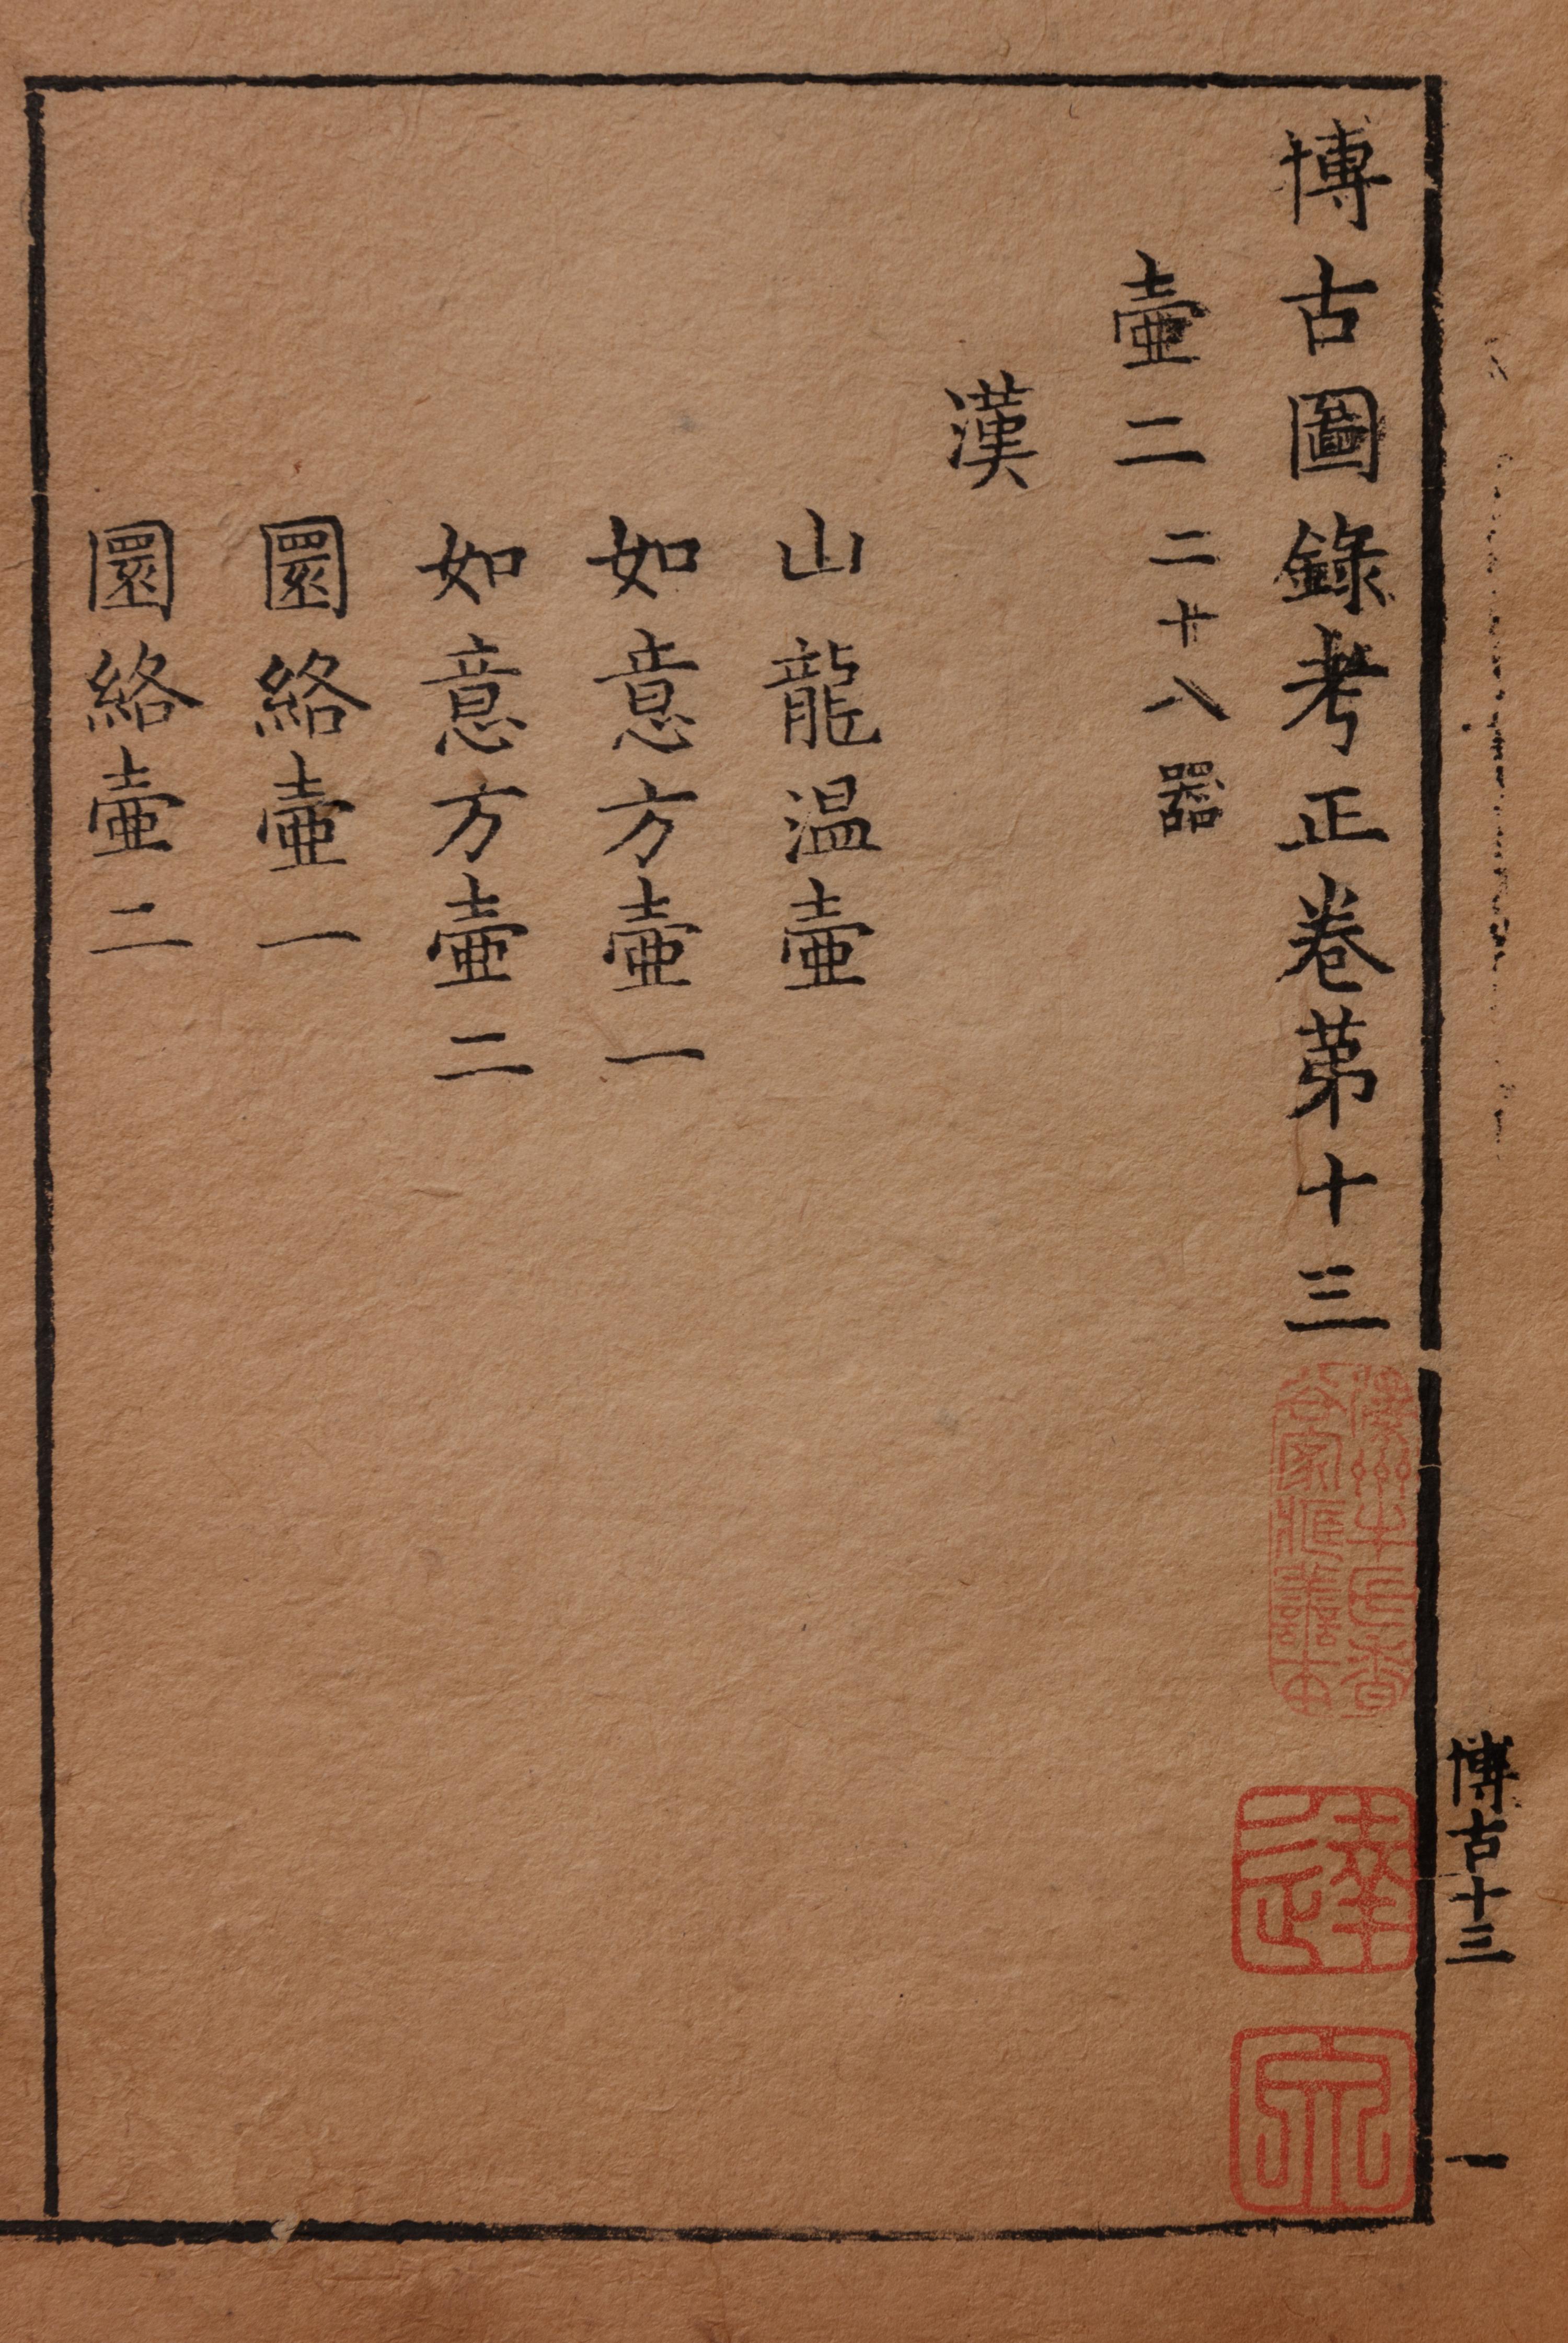 博古圖錄考正卷苐十三
壷二 二十八器
漢
山龍温壷
如意方壷一
如意方壷二
圜絡壷一
圜絡壷二
博古十三
一